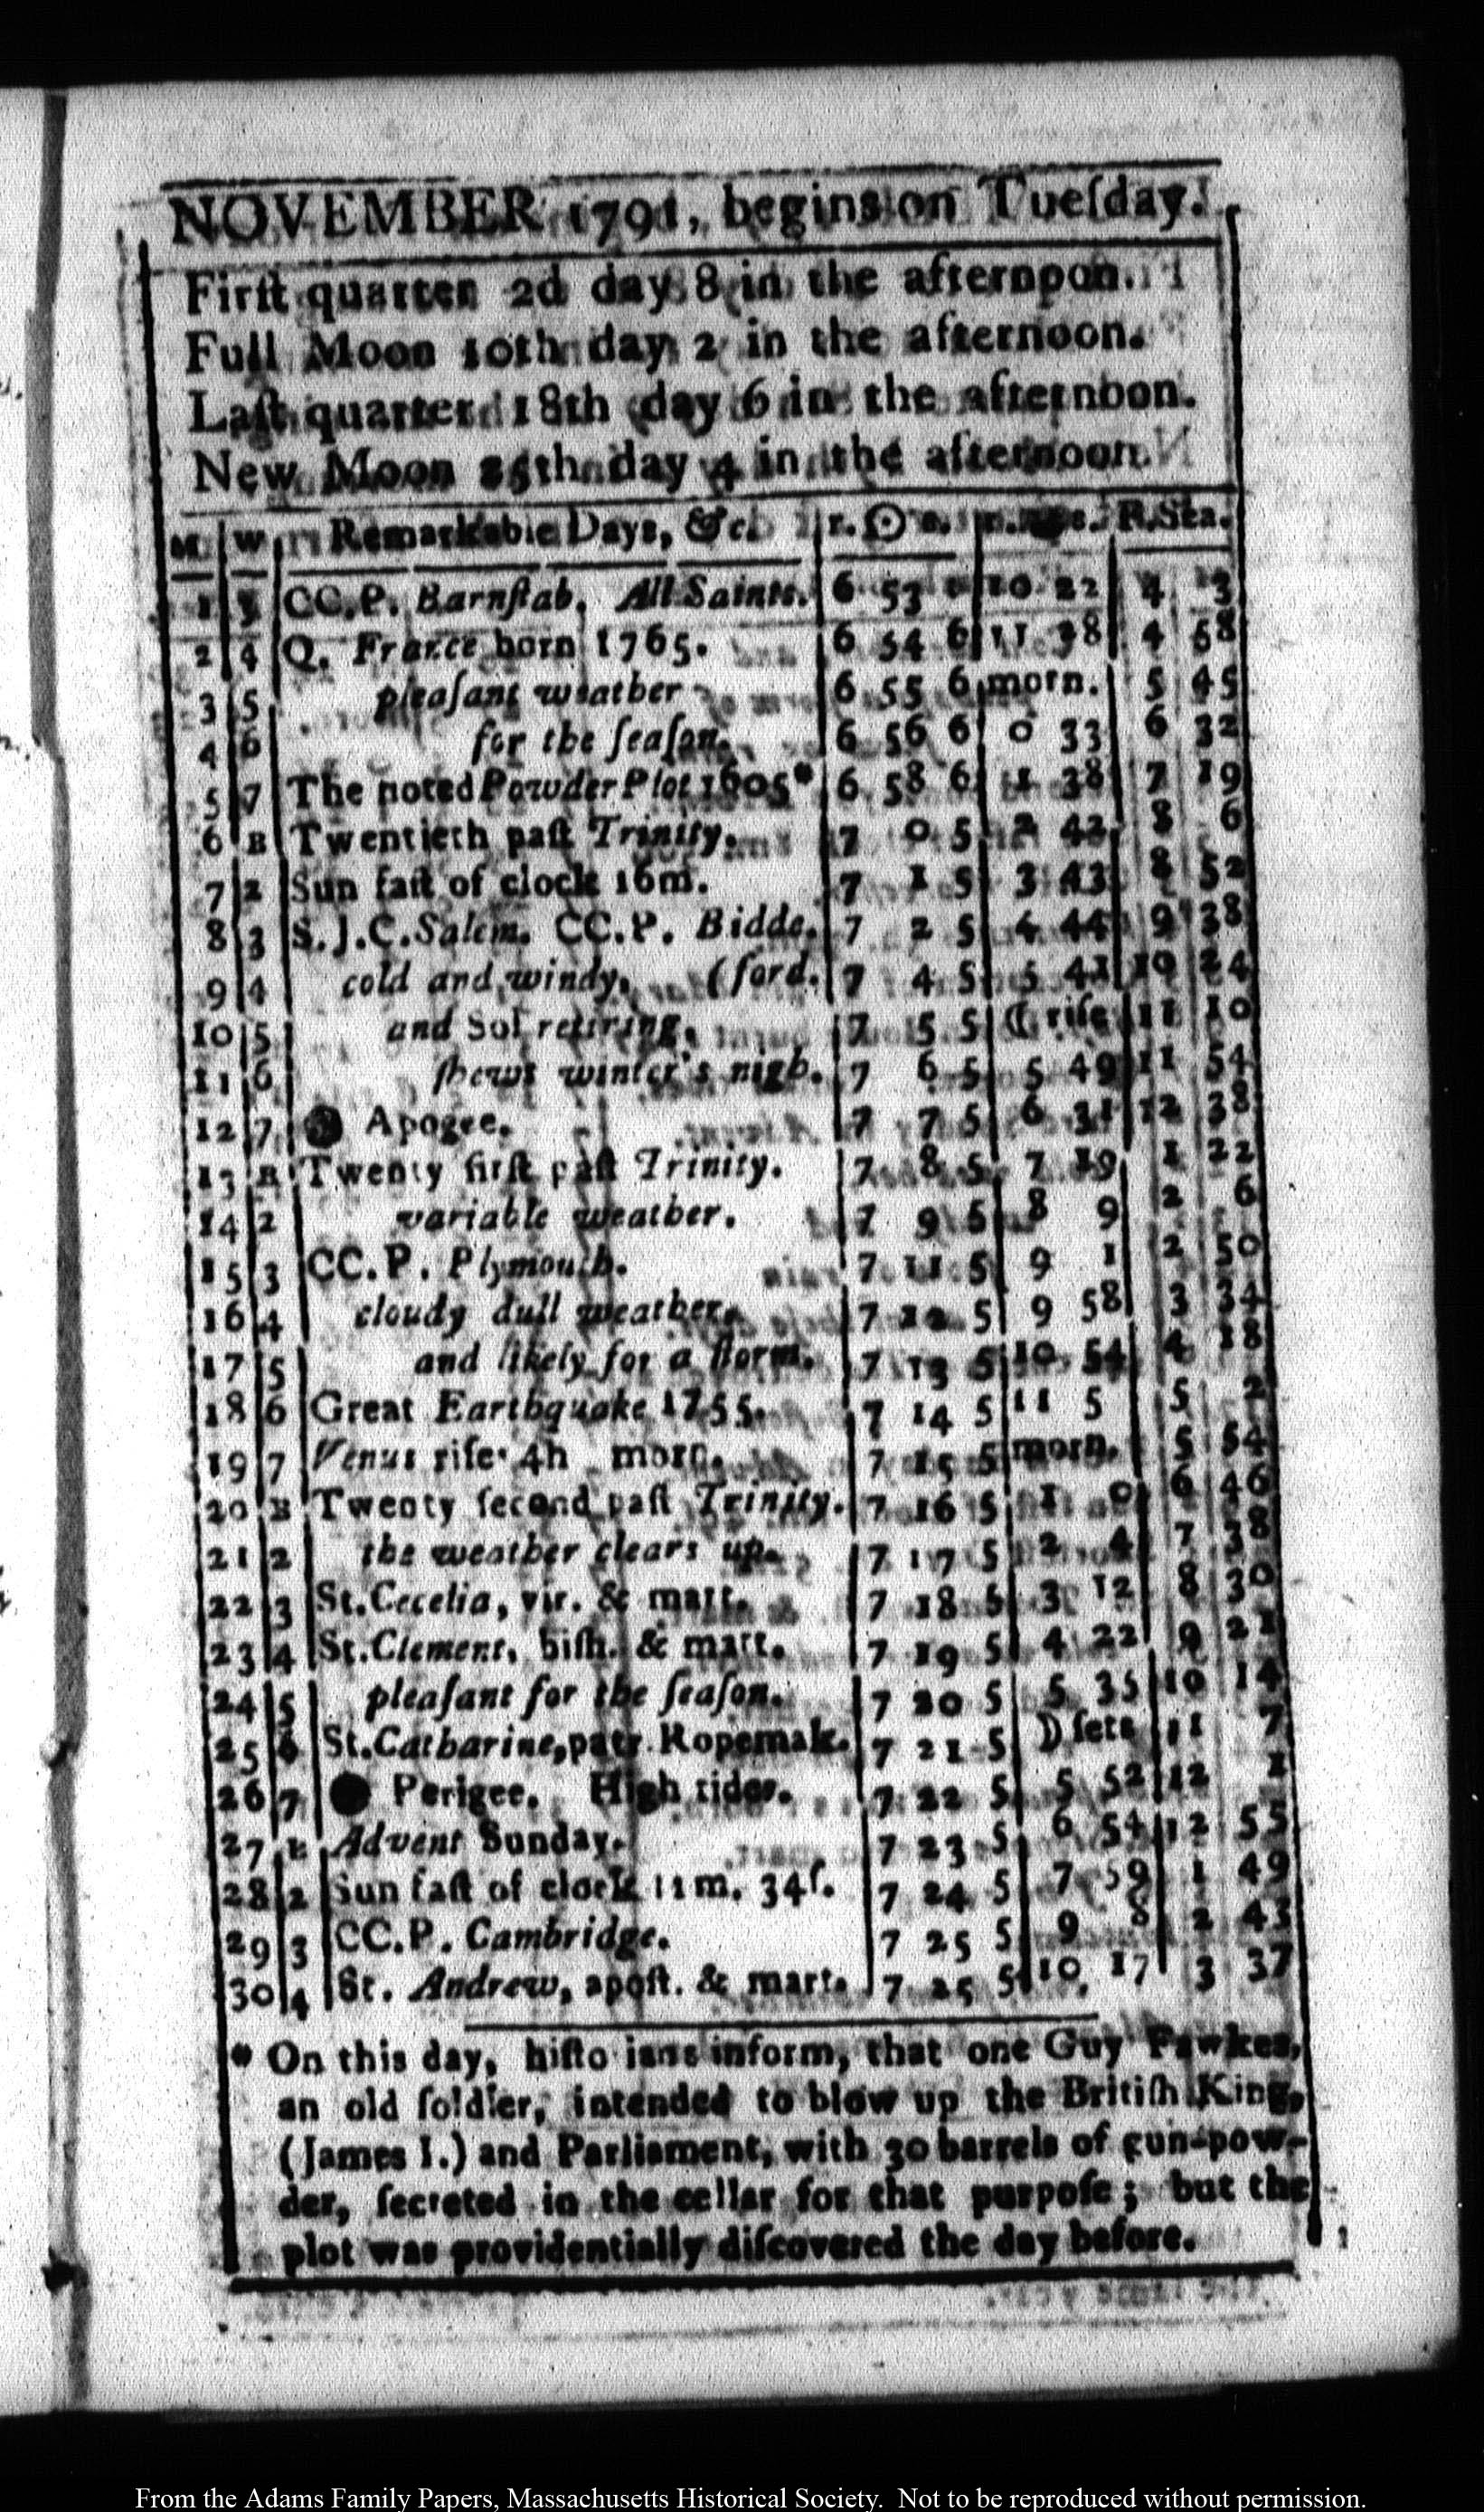 NOVEMBER 1791, begins on Tueſday.
Firſt quarter 2d day 8 in the afternoon.
Full Moon 10th day 2 in the afternoon.
Laſt quarter 18th day 6 in the afternoon.
New Moon 25th day 4 in the afternoon.
M W Remarkable Days, &c. r. ☉ s. R.Sta.
1 3 CC.P. Barnſtab. All Saints. 6 53 10 22 4 13
2 4 Q. France born 1765. 6 54 6 11 28 4 58
3 5 pleaſant weather 6 55 6 morn. 5 45
4 6 for the ſeaſon. 6 56 6 0 33 6 32
5 7 The noted Powder Plot 1605* 6 58 6 1 38 7 19
6 B Twentieth paſt Trinity. 7 0 5 2 42 8 6
7 2 Sun faſt of clock 16m. 7 1 5 3 43 8 52
8 3 S.J.C. Salem. CC.P. Bidde. 7 2 5 4 44 9 38
9 4 cold and windy. (ford. 7 4 5 5 41 10 24
10 5 and Sol retiring, 7 5 5 ☾ riſe 11 10
11 6 ſhews winter's nigh. 7 6 5 5 49 11 54
12 7 ● Apogee. 7 7 5 6 31 12 38
13 B Twenty firſt paſt Trinity. 7 8 5 7 19 1 22
14 2 variable weather. 7 9 5 8 9 2 6
15 3 CC.P. Plymouth. 7 11 5 9 1 2 50
16 4 cloudy dull weather, 7 12 5 9 58 3 34
17 5 and likely for a ſtorm. 7 13 5 10 54 4 18
18 6 Great Earthquake 1755. 7 14 5 11 5 5 2
19 7 Venus riſe 4h morn. 7 15 5 morn. 5 54
20 B Twenty ſecond paſt Trinity. 7 16 5 1 0 6 46
21 2 the weather clears up. 7 17 5 2 4 7 38
22 3 St. Cecelia, vir. & mart. 7 18 5 3 12 8 30
23 4 St. Clement, biſh. & mart. 7 19 5 4 22 9 21
24 5 pleaſant for the ſeaſon. 7 20 5 5 35 10 14
25 6 St. Catharine, patr. Ropemak. 7 21 5 ☽ ſets 11 7
26 7 ● Perigee. High tides. 7 22 5 5 52 12 1
27 B Advent Sunday. 7 23 5 6 54 12 55
28 2 Sun faſt of clock 11m. 34ſ. 7 24 5 7 59 1 49
29 3 CC.P. Cambridge. 7 25 5 9 8 2 43
30 4 St. Andrew, apoſt. & mart. 7 25 5 10 17 3 37
* On this day, hiſto ians inform, that one Guy Fawkes,
an old ſoldier, intended to blow up the Britiſh King,
(James I.) and Parliament, with 30 barrels of gun-pow-
der, ſecreted in the cellar for that purpoſe; but the
plot was providentially diſcovered the day before.
From the Adams Family Papers, Massachusetts Historical Society. Not to be reproduced without permission.